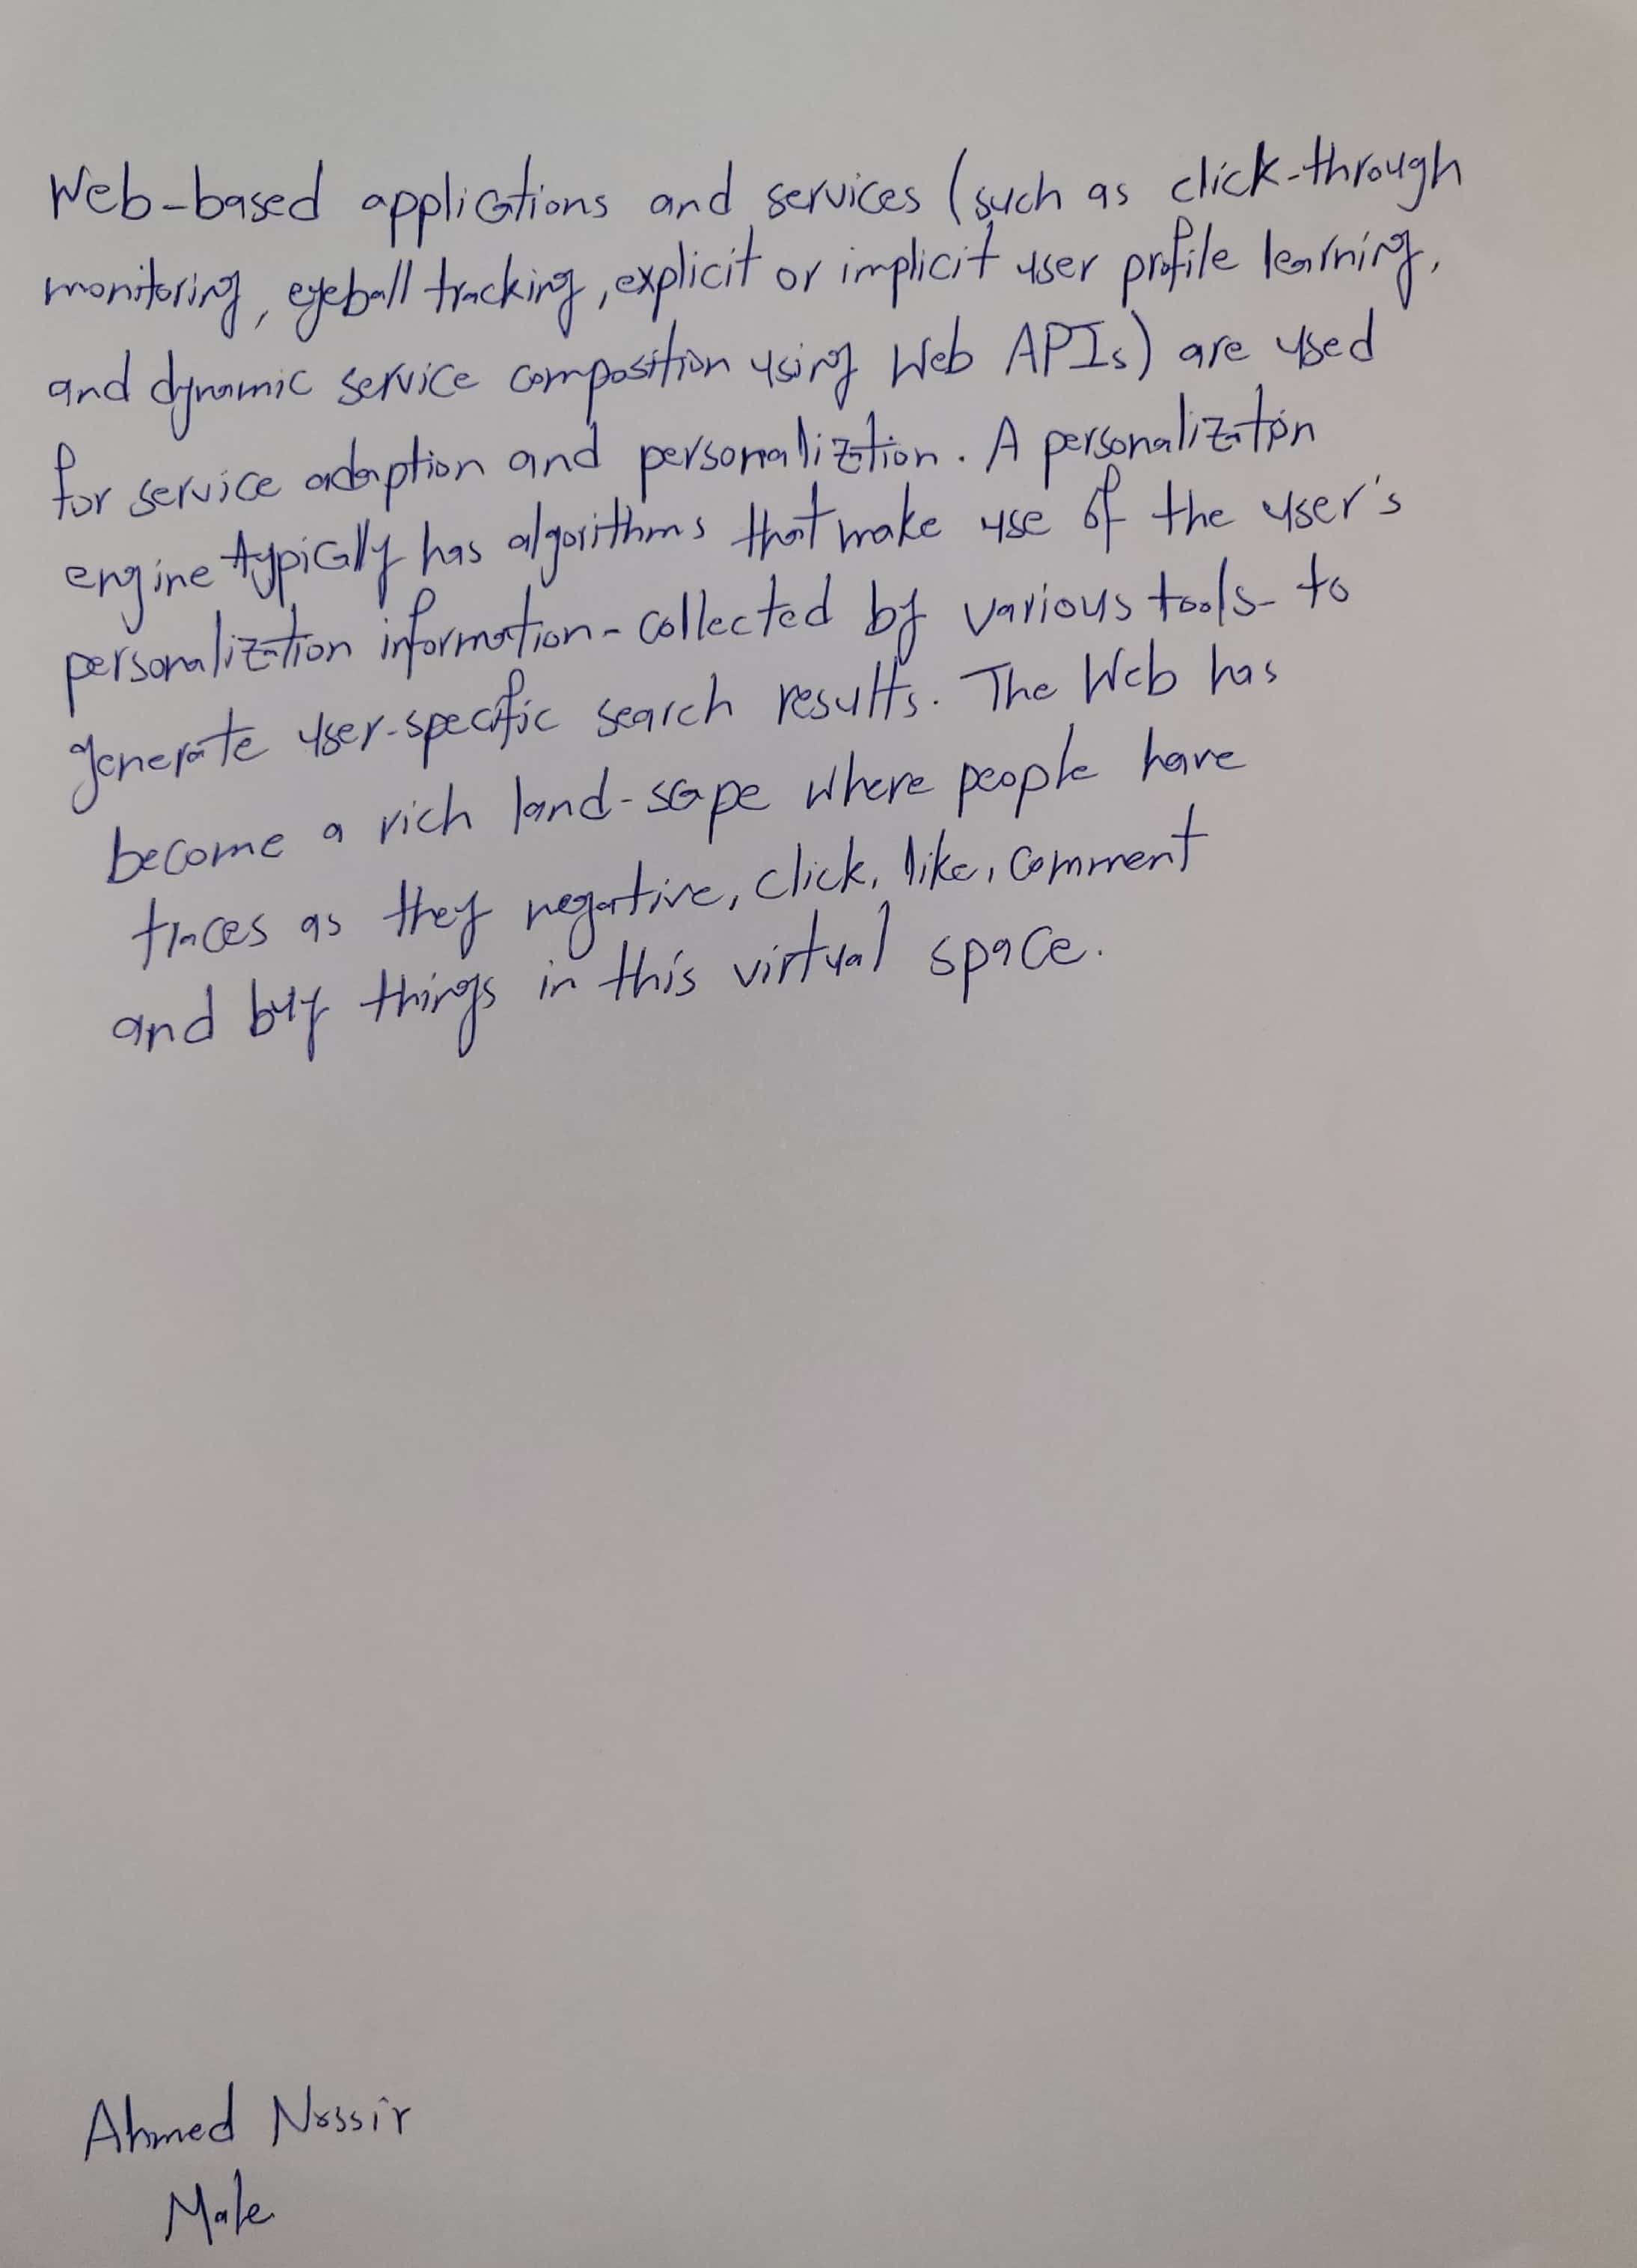 Web-based applications and services (such as click-through
monitoring, eyeball tracking, explicit or implicit user profile learning,
and dynamic service composition using Web APIs) are used
for service adaption and personaliztion. A personalization
engine typically has algorithms that make use of the user's
personalization information-collected by various tools- to
generate user-specific search results. The Web has
become a rich land-scape where people have
traces as they negative, click, like, comment
and buy things in this virtual space.
Ahmed Nossir
Male